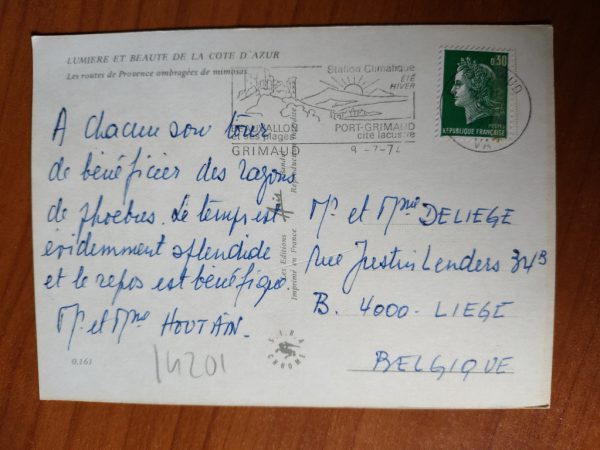 LUMIERE ET BEAUTE DE LA COTE D'AZUR
Les routes de Provence ombragées de mimosas
Station Climatique
ÉTÉ
HIVER
et ses plages
GRIMAUD
PORT-GRIMAUD
cité lacustre
0,30
POSTES
REPUBLIQUE FRANÇAISE
A chacun son tour
de bénéficier des rayons
de phoebus. Le temps est
évidemment splendide
et le repos est bénéfique
Mr et Mme HOUTAIN.
Mr et Mme DELIEGE
Rue Justin Lenders 34B
B. 4000 - LIEGE
BELGIQUE
Les Editions
Imprimé en France
0.161
14201